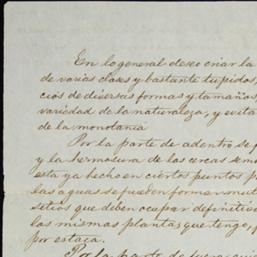 En lo general deseo criar la
de varias clases y bastante tupidos,
ciós de diversas formas y tamaños,
variedad de la naturaleza, y evita
de la monotania
Por la parte de adentro se p
y la hermosura de las cercas sem
esta ya hecho en ciertos puntos p
las aguas se pueden formar
sitios que deben ocupar definitiv
las mismas plantas que tengo, p
por estaca.
Por la parte de